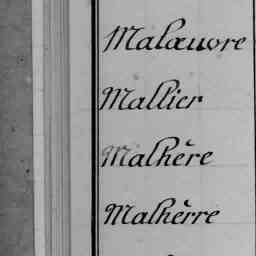 Malœuvre
Mallier
Malhère
Malhèrre